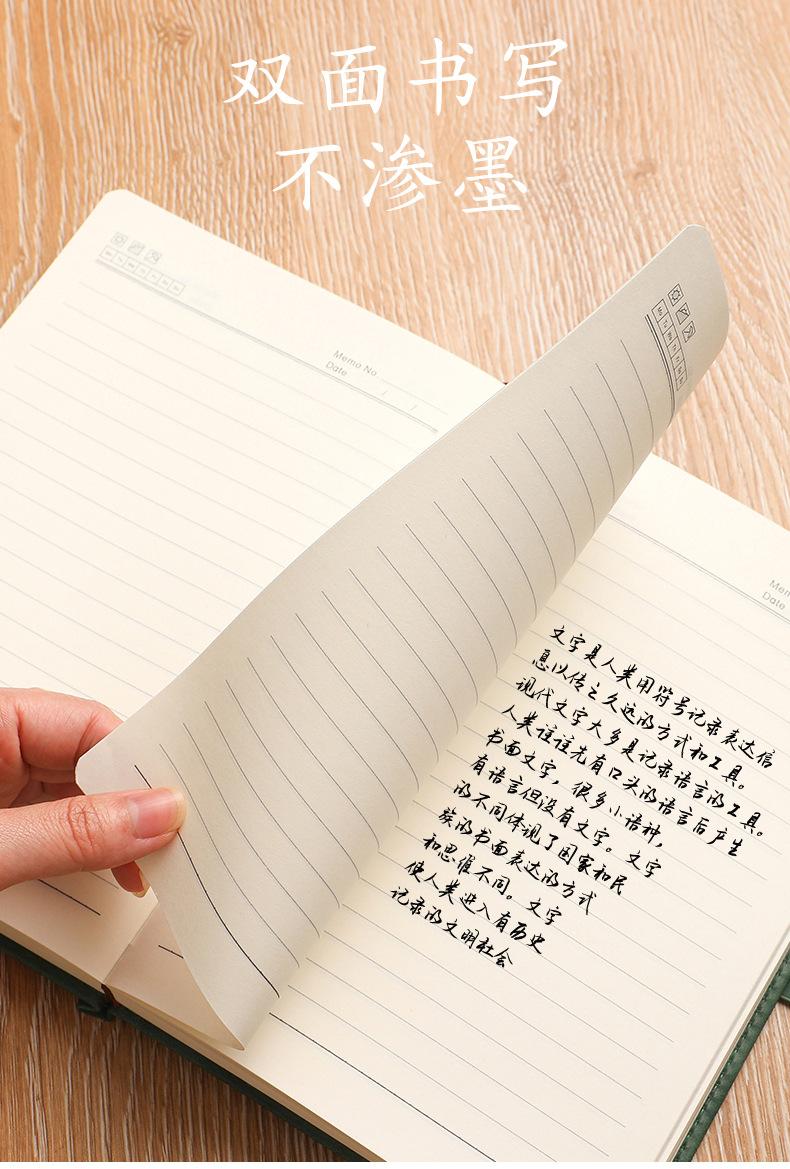 双面书写
不渗墨
Mo Tu We Th Fr Sa Su
Memo No
Date / /
Mo Tu We Th Fr Sa Su
Date
文字是人类用符号记录表达信
息以传之久远的方式和工具。
现代文字大多是记录语言的工具。
人类往往先有口头的语言后产生
书面文字，很多小语种，
有语言但没有文字。文字
的不同体现了国家和民
族的书面表达的方式
和思维不同。文字
使人类进入有历史
记录的文明社会